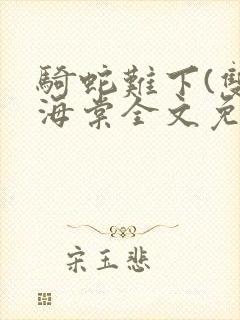 騎蛇難下(雙
海棠全文免
宋玉悲